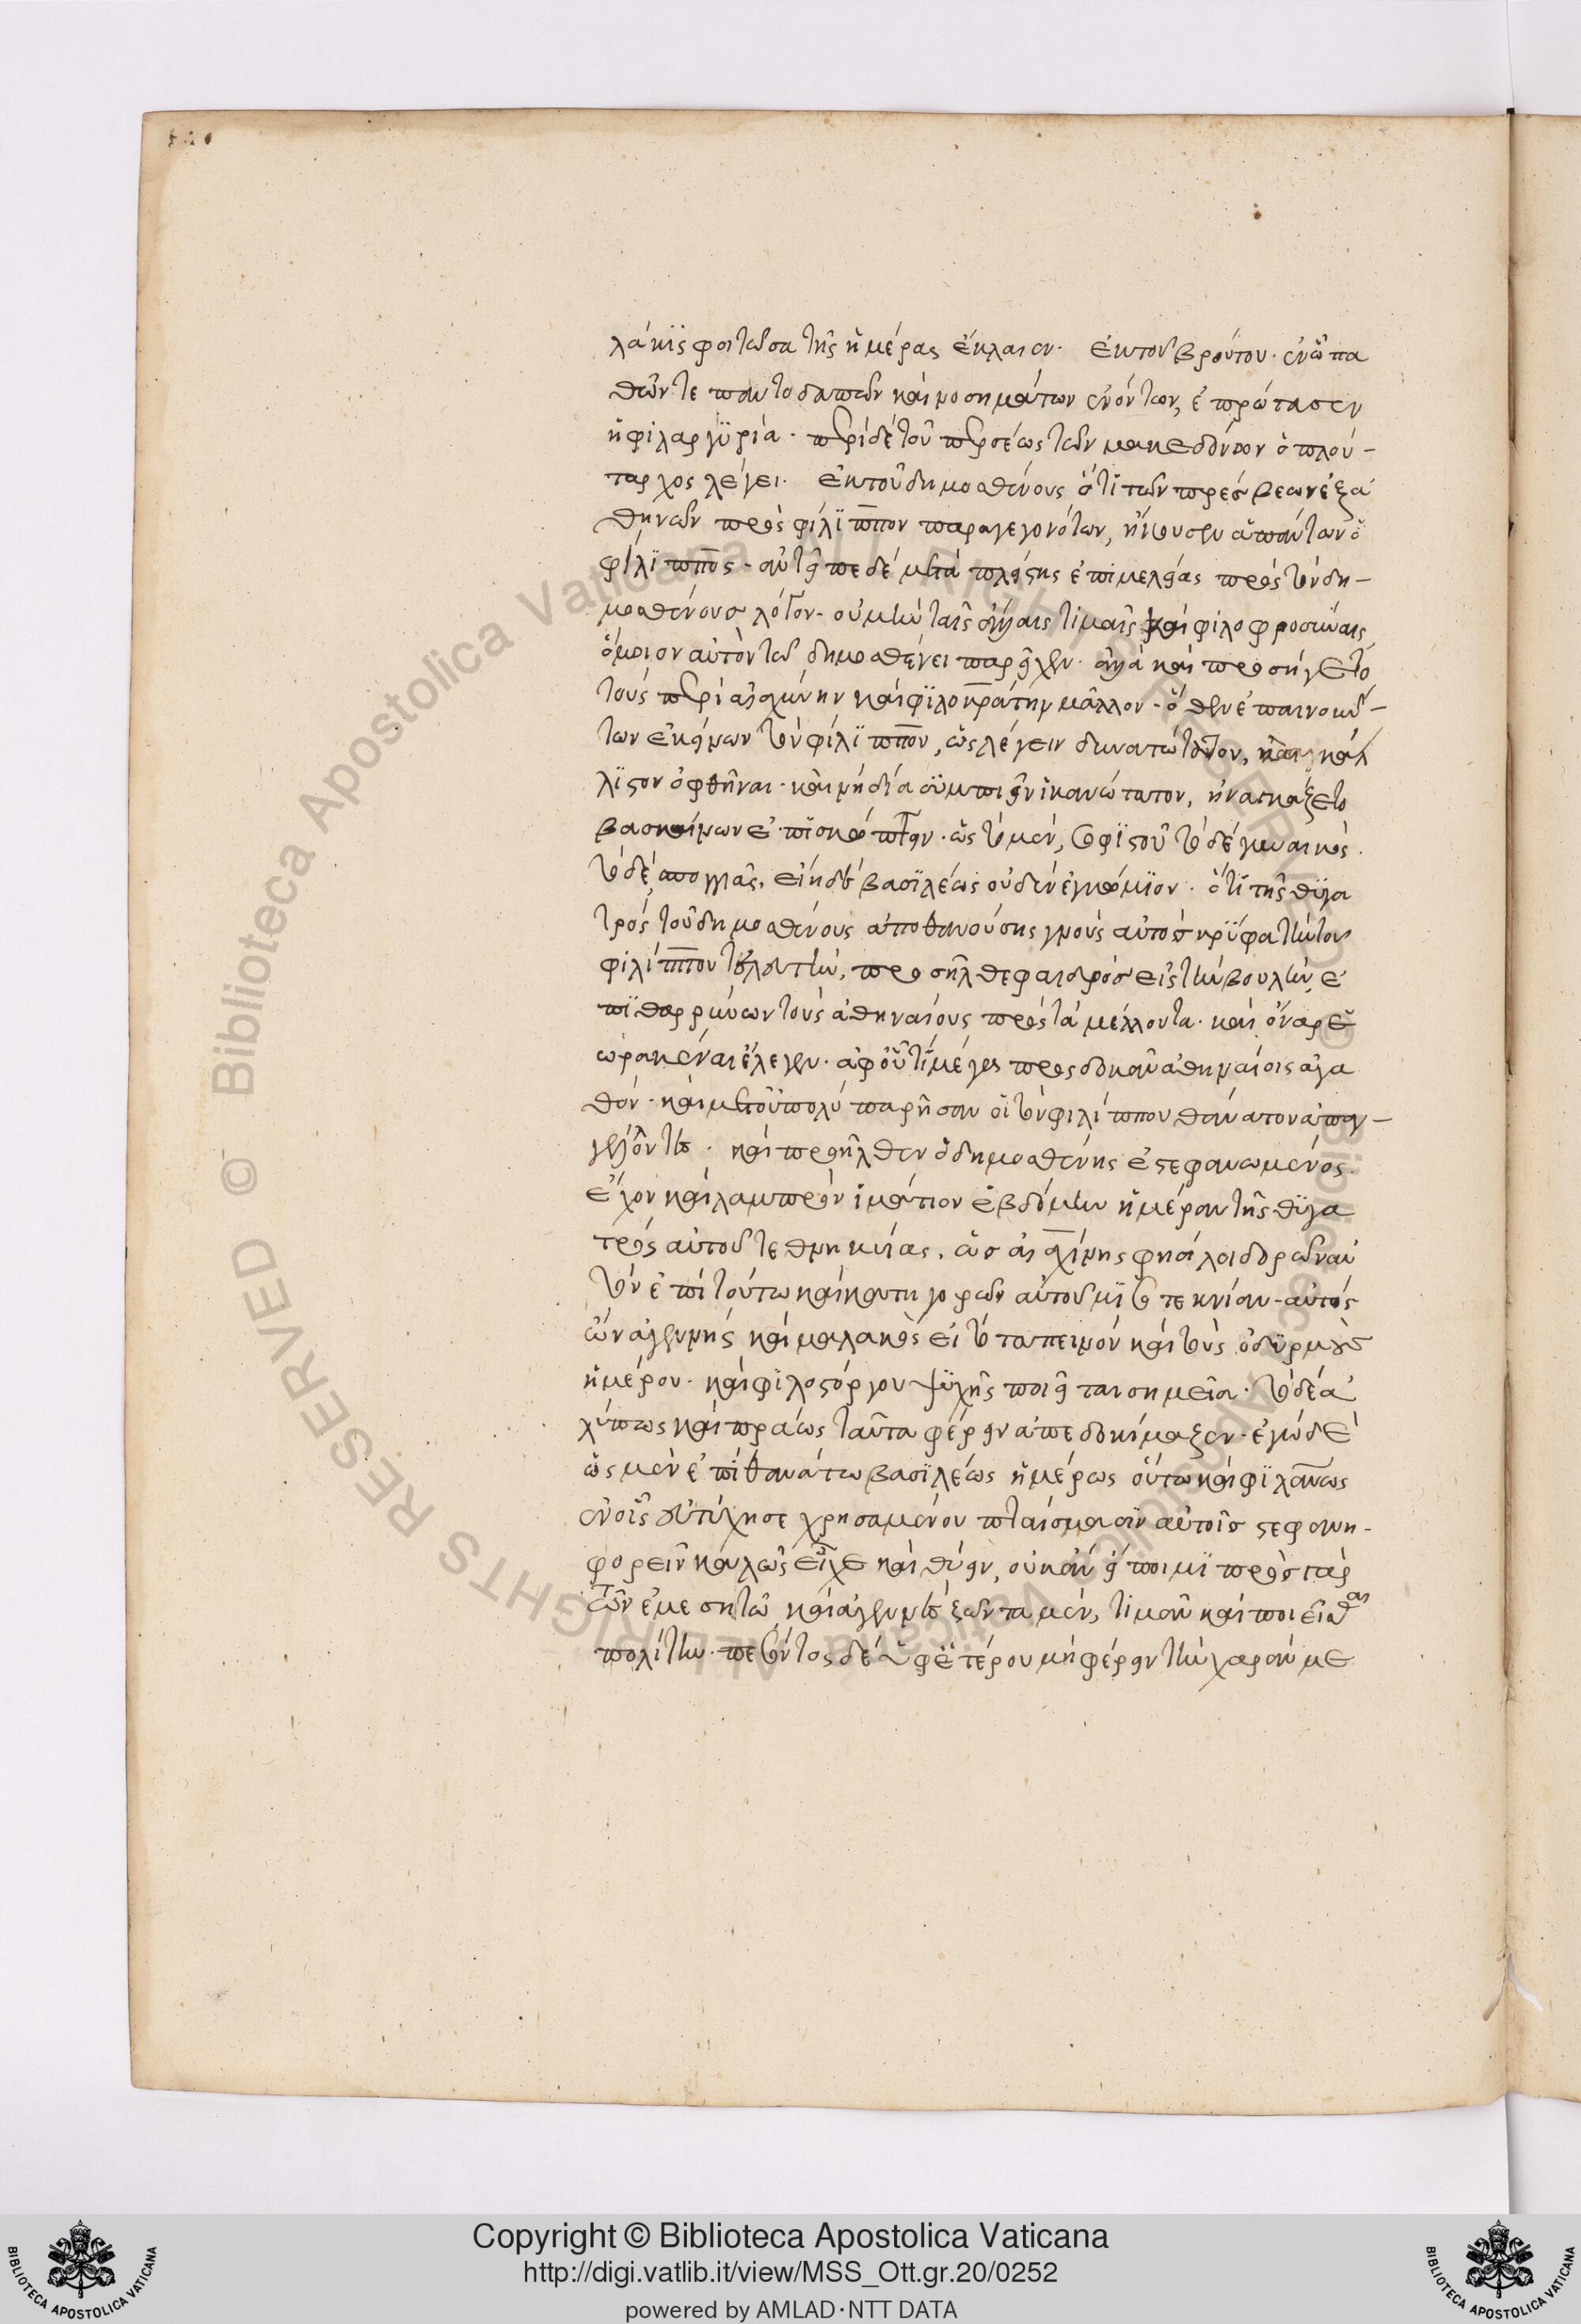 λάκϊς φοιτῶσα τῆς ἡμέρας ἔκλαιεν. ἐκ τοῦ βρούτου. ἐν ᾧ πα
θῶν τε παντοδαπῶν καὶ νοσημάτων ἐνόντων, ἐπρώτασεν
ἡ φιλαργϋρία. περὶ δὲ τοῦ περσέως τῶν μακεδόνων ὁ πλού-
ταρχος λέγει. ἐκ τοῦ δημοσθένους ὅτϊ τῶν πρεσβεων ἐξ ἀ
θηνῶν πρὸς φίλϊππον παραγεγονότων, ἤκουσεν ἁπάντων ὁ
φίλϊππος. ἀντεῖπε δὲ μετὰ πλείστης ἐπιμελείας πρὸς τὸν δη-
μοσθένους λόγον. οὐ μὴν ταῖς ἄλλαις τιμαῖς καὶ φιλοφροσύναις
ὅμοιον αὐτὸν τῶ δημοσθένει παρεῖχεν. ἀλλὰ καὶ προσήγετο
τοὺς περὶ αἰσχίνην καὶ φϊλοκράτην μᾶλλον. ὅθεν ἐπαινούν-
των ἐκείνων τὸν φίλϊππον, ὡς λέγειν δυνατώτατον, καὶ κάλ
λϊστον ὀφθῆναι. καὶ νὴ δία συμπιεῖν ἱκανώτατον, ἠναγκάζετο
βασκαίνων ἐπϊσκώπτειν. ὡς τὸ μὲν, σοφϊστοῦ τὸ δὲ γυναικὸς.
τὸ δὲ, σπογγιᾶς. εἴη δὲ βασϊλέως οὐδὲν ἐγκώμϊον. ὅτϊ τῆς θϋγα
τρὸς τοῦ δημοσθένους ἀποθανούσης γνοὺς αὐτὸς κρϋφα τὴν τοῦ
φιλίππου τελευτὴν, προσῆλθε φαιδρὸς εἰς τὴν βουλὴν ἐ
πϊθαρρύνων τοὺς ἀθηναίους πρὸς τὰ μέλλοντα. καὶ ὄναρ ἑ
ωρακέναι ἔλεγεν. ἀφ' οὗ τϊ μέγα προσδοκᾶν ἀθηναίοις ἀγα
θόν. καὶ μετ' οὐ πολὺ παρῆσαν οἱ τὸν φιλίππου θάνατον ἀπαγ-
γέλοντες. καὶ προῆλθεν ὁ δημοσθένης ἐστεφανωμένος.
ἔχον καὶ λαμπρὸν ἱμάτιον ἑβδόμην ἡμέραν τῆς θϋγα
τρὸς αὐτοῦ τεθνηκυίας. ὡς αἰσχίνης φησὶ λοιδορῶν αὐ
τὸν ἐπὶ τούτω καὶ κατηγορῶν αὐτοῦ μϊσοτεκνίαν. αὐτὸς
ὢν ἀγεννὴς καὶ μαλακὸς εἰ τὸ ταπεινὸν καὶ τοὺς ὀδϋρμοὺς
ἡμέρου. καὶ φϊλοστόργου ψϋχῆς ποιεῖται σημεῖα. τὸ δὲ ἀ
λύπως καὶ πράως ταῦτα φέρειν ἀπεδοκίμαζεν. ἐγὼ δὲ
ὡς μὲν ἐπὶ θανάτω βασϊλέως ἡμέρως οὕτω καὶ φϊλανως
ἐν οἷς ηὐτύχησε χρησαμένου πταίσμασϊν αὐτοῖς στεφανη-
φορεῖν καλῶς εἶχε καὶ θύειν, οὐκ ἂν εἴποιμϊ πρὸς γὰρ
τῶν ἐμεσητῶ καὶ ἀγεννὲς ζῶντα μὲν, τιμᾶν καὶ ποιεῖσθαι
πολίτην. πεσόντος δὲ ὑφ' ἑτέρου μὴ φέρειν τὴν χαρὰν με